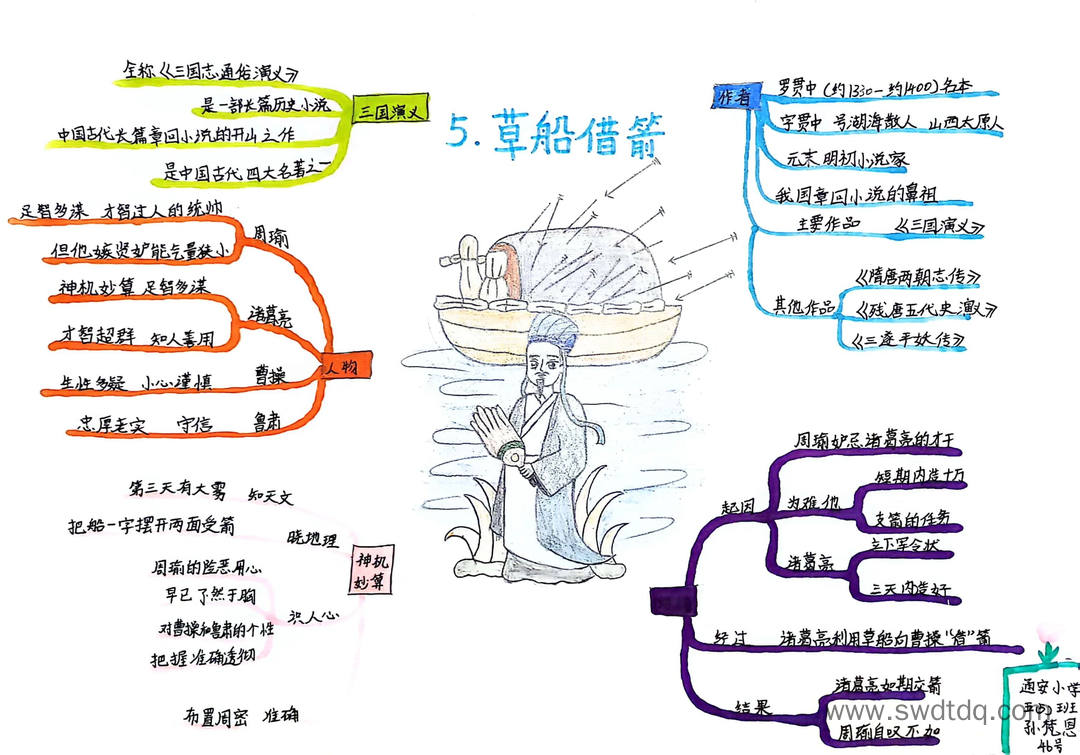 5.草船借箭
三国演义
全称《三国志通俗演义》
是一部长篇历史小说
中国古代长篇章回小说的开山之作
是中国古代四大名著之一
人物
周瑜
足智多谋 才智过人的统帅
但他嫉贤妒能气量狭小
诸葛亮
神机妙算 足智多谋
才智超群 知人善用
曹操
生性多疑 小心谨慎
鲁肃
忠厚老实 守信
神机
妙算
知天文
第三天有大雾
晓地理
把船一字摆开两面受箭
识人心
周瑜的险恶用心
早已了然于胸
对曹操和鲁肃的个性
把握准确透彻
布置周密 准确
作者
罗贯中(约1330-约1400)名本
字贯中 号湖海散人 山西太原人
元末明初小说家
我国章回小说的鼻祖
主要作品 《三国演义》
其他作品
《隋唐两朝志传》
《残唐五代史演义》
《三遂平妖传》
起因
周瑜妒忌诸葛亮的才干
为难他
短期内造十万
支箭的任务
诸葛亮
立下军令状
三天内造好
经过 诸葛亮利用草船向曹操“借”箭
结果
诸葛亮如期交箭
周瑜自叹不如
www.swdtdq.com
46号